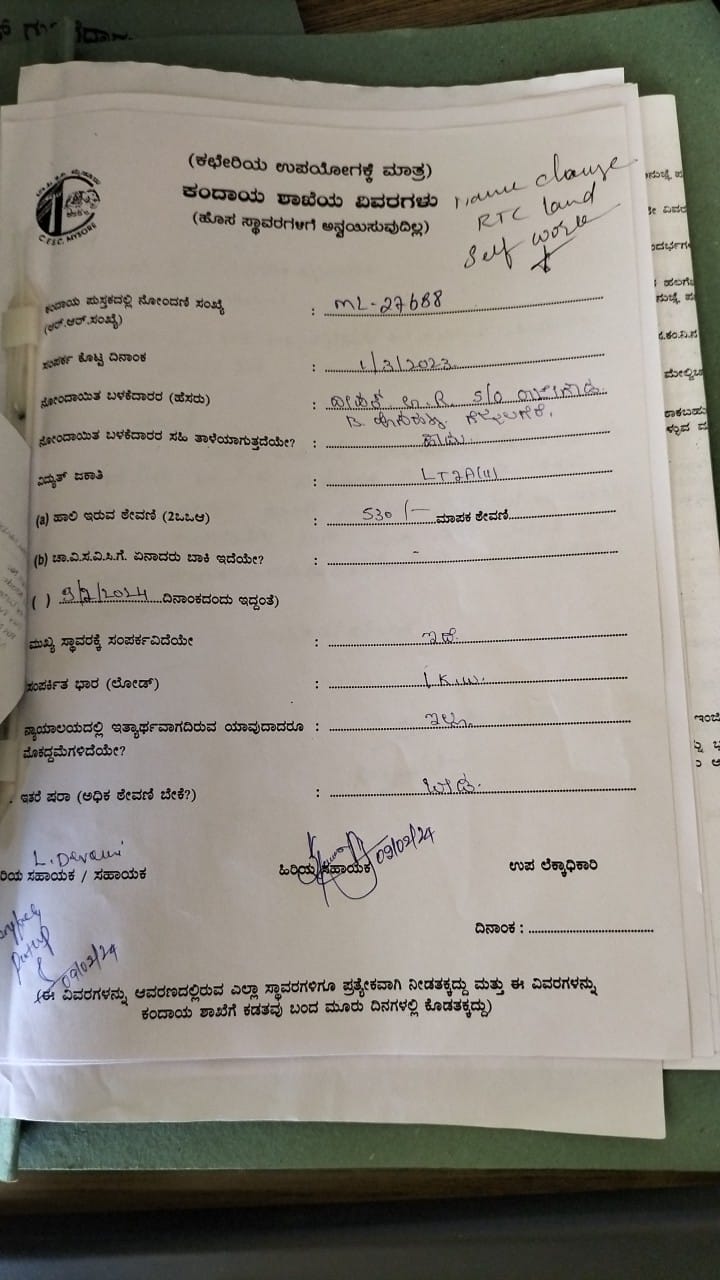 (ಕಛೇರಿಯ ಉಪಯೋಗಕ್ಕೆ ಮಾತ್ರ)
ಕಂದಾಯ ಶಾಖೆಯ ವಿವರಗಳು
(ಹೊಸ ಸ್ಥಾವರಗಳಿಗೆ ಅನ್ವಯಿಸುವುದಿಲ್ಲ)
Name change
RTC land
Self work
C.E.SC. MYSORE
ಕಂದಾಯ ಪುಸ್ತಕದಲ್ಲಿ ನೋಂದಣಿ ಸಂಖ್ಯೆ : ML-27688
(ಆರ್.ಆರ್.ಸಂಖ್ಯೆ)
ಸಂಪರ್ಕ ಕೊಟ್ಟ ದಿನಾಂಕ : 1/3/2023
ನೋಂದಾಯಿತ ಬಳಕೆದಾರರ (ಹೆಸರು) : S/O
ನೋಂದಾಯಿತ ಬಳಕೆದಾರರ ಸಹಿ ತಾಳೆಯಾಗುತ್ತದೆಯೇ? : ಹೌದು
ವಿದ್ಯುತ್ ಜಕಾತಿ : LT2A(ii)
(a) ಹಾಲಿ ಇರುವ ಠೇವಣಿ (2ಒಒಆ) : 530/- ಮಾಪಕ ಠೇವಣಿ
(b) ಚಾ.ವಿ.ಸ.ವಿ.ಸಿ.ಗೆ. ಏನಾದರು ಬಾಕಿ ಇದೆಯೇ? : -
( ) 9/2/2024 ದಿನಾಂಕದಂದು ಇದ್ದಂತೆ)
ಮುಖ್ಯ ಸ್ಥಾವರಕ್ಕೆ ಸಂಪರ್ಕವಿದೆಯೇ : ಇದೆ.
ಸಂಪರ್ಕಿತ ಭಾರ (ಲೋಡ್) : 1 K.W.
ನ್ಯಾಯಾಲಯದಲ್ಲಿ ಇತ್ಯಾರ್ಥವಾಗದಿರುವ ಯಾವುದಾದರೂ : ಇಲ್ಲ.
ಮೊಕದ್ದಮೆಗಳಿದೆಯೇ?
ಇತರೆ ಷರಾ (ಅಧಿಕ ಠೇವಣಿ ಬೇಕೆ?) : ಬೇಡ.
09/02/24
ರಿಯ ಸಹಾಯಕ / ಸಹಾಯಕ ಹಿರಿಯ ಸಹಾಯಕ ಉಪ ಲೆಕ್ಕಾಧಿಕಾರಿ
ದಿನಾಂಕ :
09/02/24
(ಈ ವಿವರಗಳನ್ನು ಆವರಣದಲ್ಲಿರುವ ಎಲ್ಲಾ ಸ್ಥಾವರಗಳಿಗೂ ಪ್ರತ್ಯೇಕವಾಗಿ ನೀಡತಕ್ಕದ್ದು ಮತ್ತು ಈ ವಿವರಗಳನ್ನು
ಕಂದಾಯ ಶಾಖೆಗೆ ಕಡತವು ಬಂದ ಮೂರು ದಿನಗಳಲ್ಲಿ ಕೊಡತಕ್ಕದ್ದು)